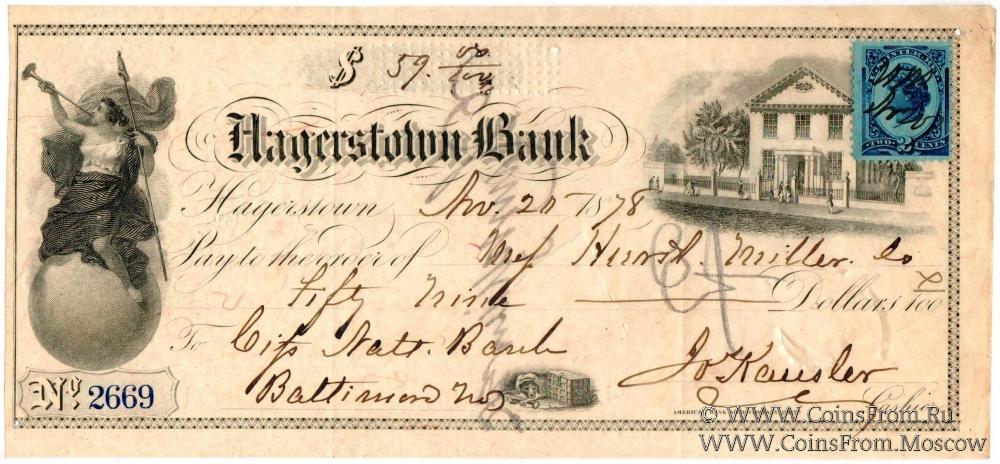 $ 59. 00/100
Hagerstown Bank
Hagerstown Nov. 20 1878
Pay to the order of Mess Hurst. Miller. Co
Fifty Nine Dollars 100
To Citz Natl. Bank
Baltimore Md
Jo Kausler
Cash
No. 2669
TWO 2 CENTS
AMERICAN
© WWW.CoinsFrom.Ru
WWW.CoinsFrom.Moscow